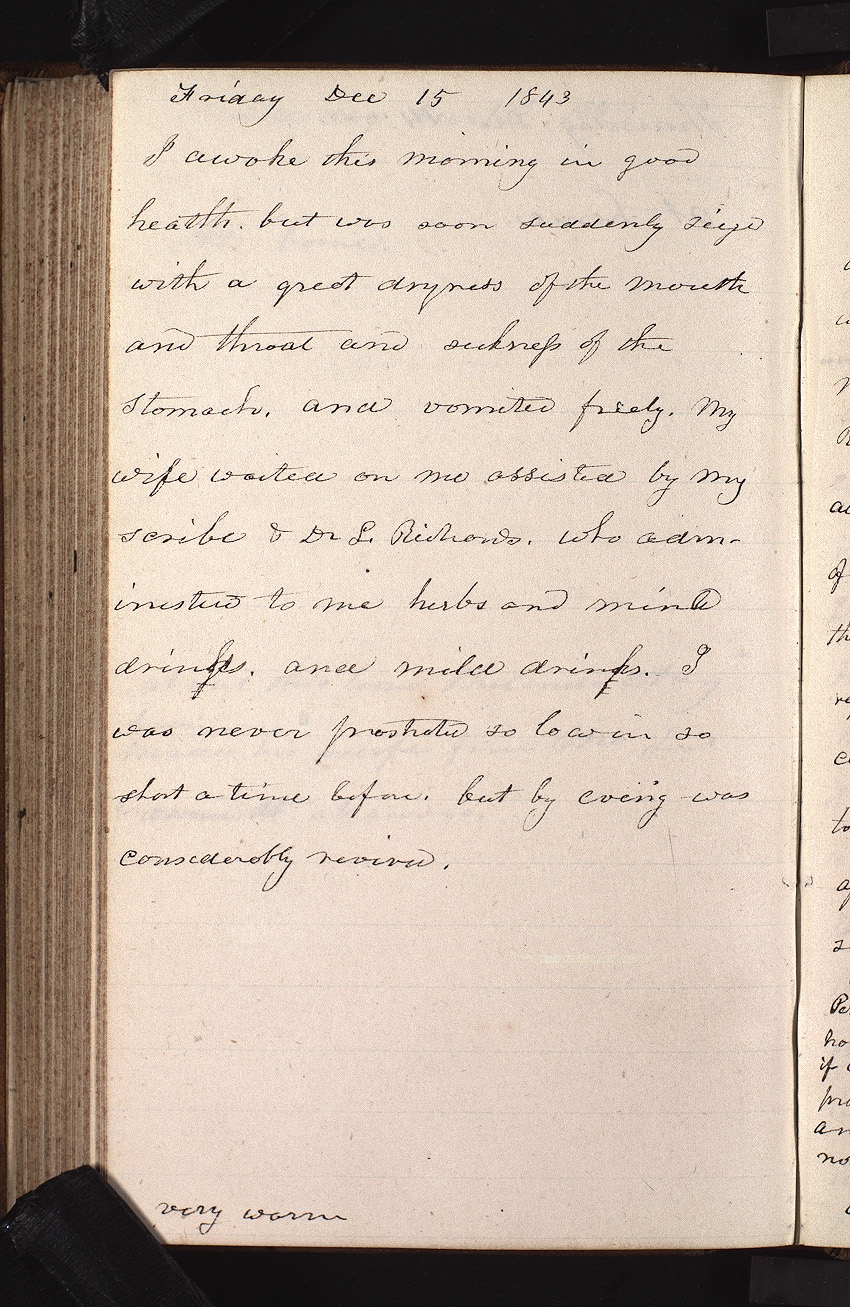 Friday Dec 15 1843
I awoke this morning in good
health. but was soon suddenly seizd
with a great dryness of the mouth
and throat and sickness of the
stomach. and vomited freely. My
wife waited on me assisted by my
scribe & Dr L. Richards. who adm-
inisterd to me herbs and mind
drinks. and mild drinks. I
was never prostrated so low in so
short a time before. but by eveing was
considerably revived.
very warm